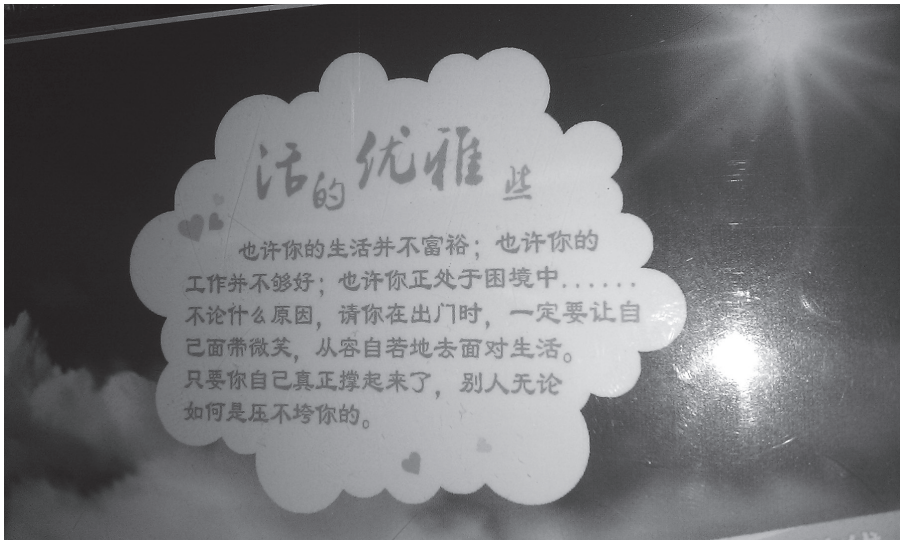 活的优雅些
也许你的生活并不富裕；也许你的
工作并不够好；也许你正处于困境中......
不论什么原因，请你在出门时，一定要让自
己面带微笑，从容自若地去面对生活。
只要你自己真正撑起来了，别人无论
如何是压不垮你的。